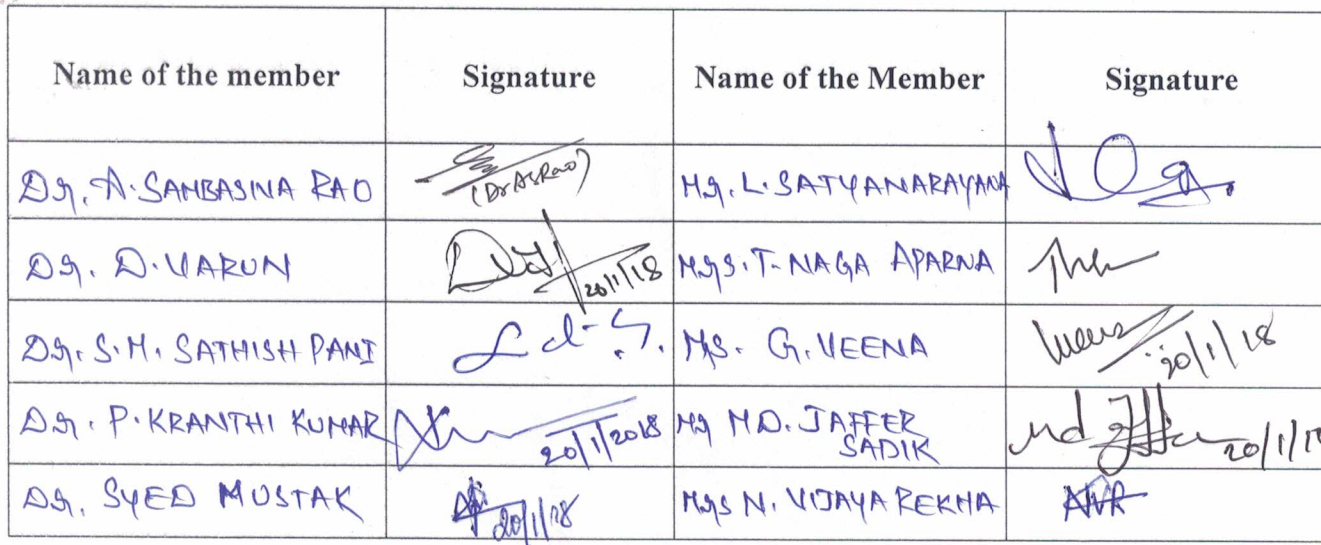 Name of the member Signature Name of the Member Signature
Dr. A. SAMBASIVA RAO (Dr ASRao) Mr. L. SATYANARAYANA
Dr. D. VARUN 20/1/18 Mrs. T. NAGA APARNA
Dr. S.M. SATHISH PANI Ms. G. VEENA Veena 20/1/18
Dr. P. KRANTHI KUMAR 20/1/2018 Mr MD. JAFFER
SADIK Md 20/1/18
Dr. SYED MUSTAK 20/1/18 Mrs N. VIJAYA REKHA NVR